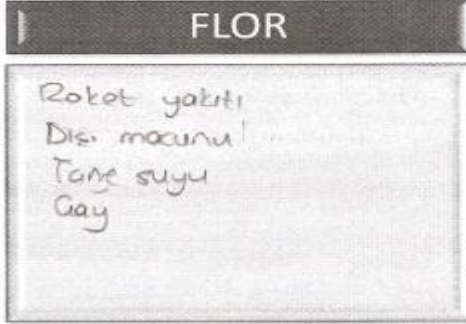 FLOR
Roket yakıtı
Diş. macunu
Tane suyu
Çay